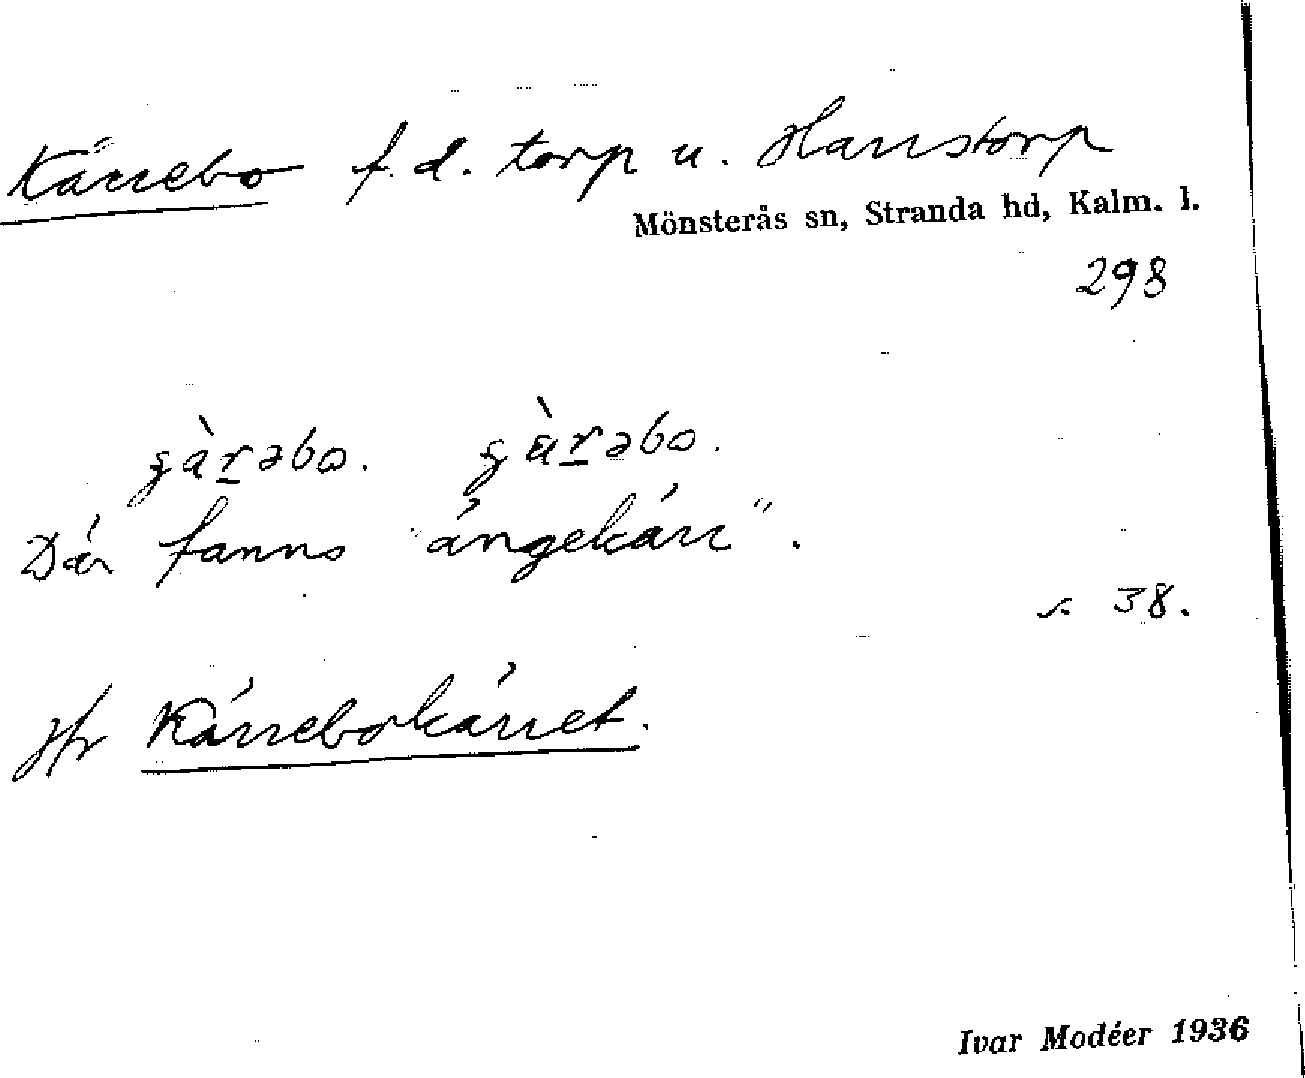 Kärrebo f. d. torp u. Harrstorp
Mönsterås sn, Stranda hd, Kalm. l.
298
Där fanns "ängekärr".
s. 38.
Hr Kärrebokärret.
Ivar Modéer 1936